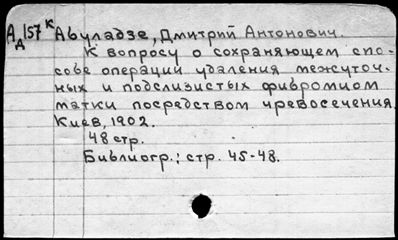 Ад157к Абуладзе, Дмитрий Антонович.
К вопросу о сохраняющем спо-
собе операции удаления межуточ-
ных и подслизистых фибромиом
матки посредством чревосечения.
Киев, 1902.
48 стр.
Библиогр.; стр. 45-48.